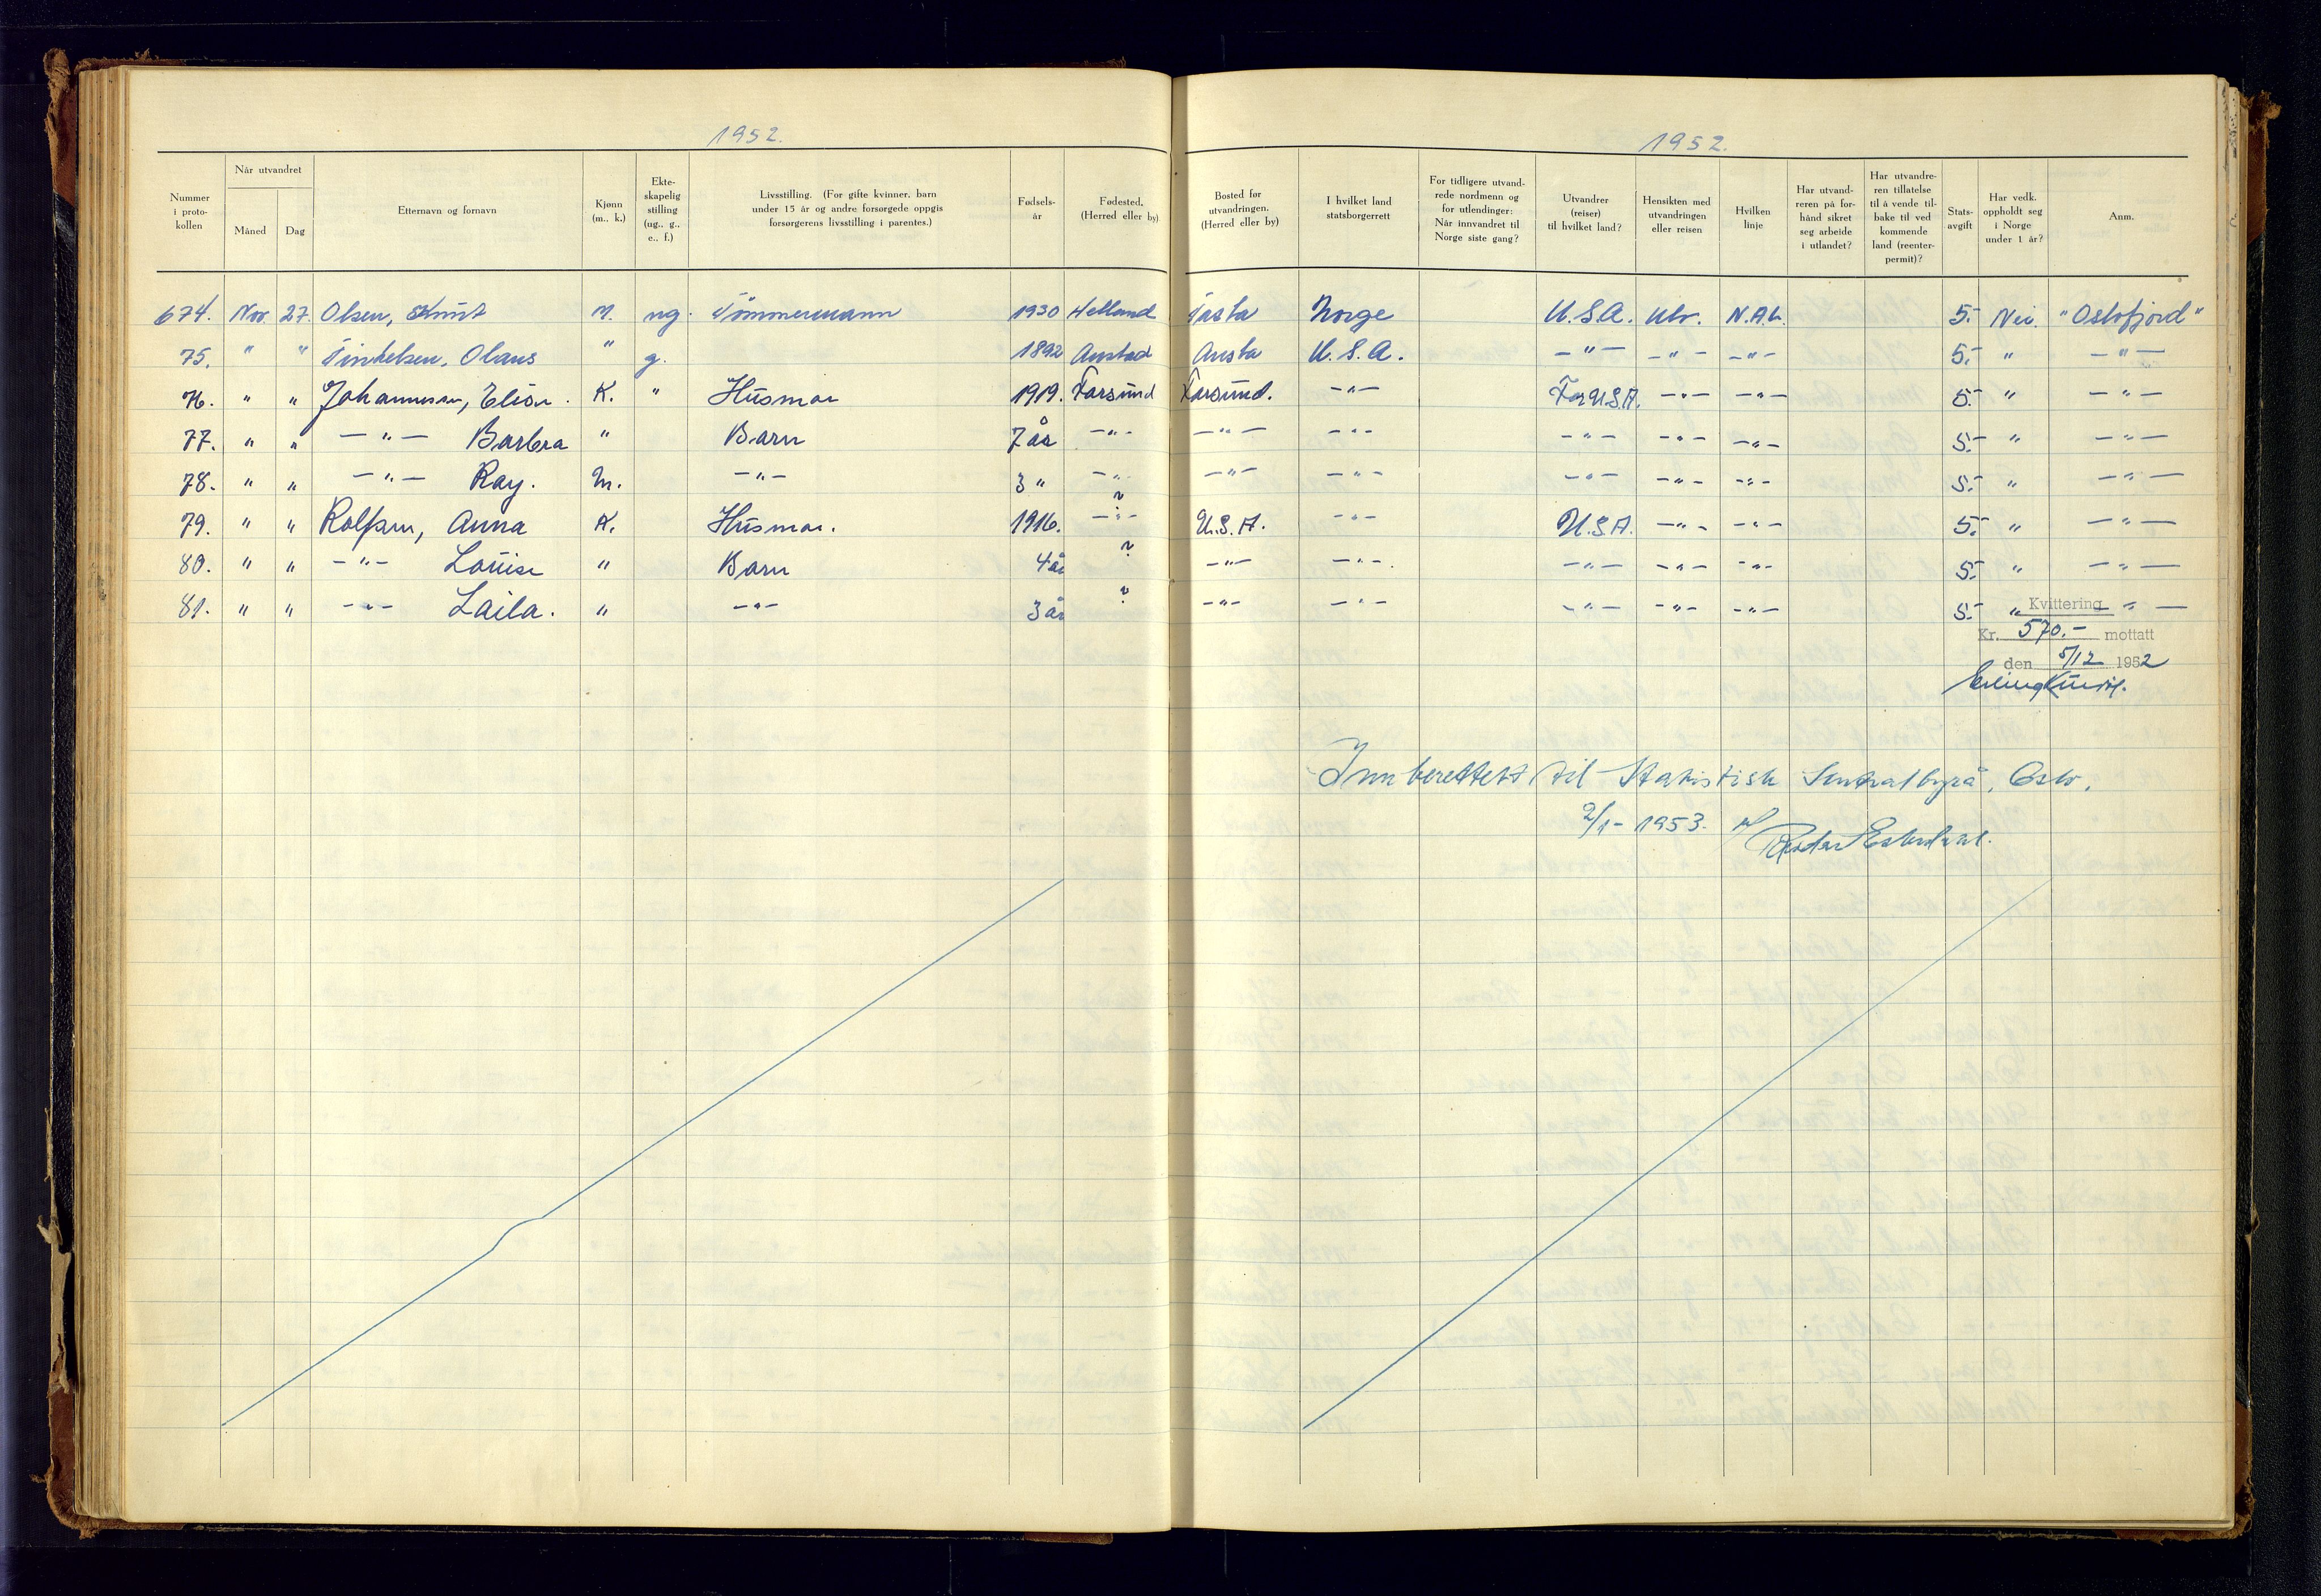 1952.
1952.
Nummer i proto- kollen
Når utvandret
Måned
Dag
Etternavn og fornavn
Kjønn (m., k.)
Ekte- skapelig stilling (ug., g., e., f.)
Livsstilling. (For gifte kvinner, barn under 15 år og andre forsørgede oppgis forsørgerens livsstilling i parentes.)
Fødsels- år
Fødested. (Herred eller by)
Bosted før utvandringen. (Herred eller by)
I hvilket land statsborgerrett
For tidligere utvand- rede nordmenn og for utlendinger: Når innvandret til Norge siste gang?
Utvandrer (reiser) til hvilket land?
Hensikten med utvandringen eller reisen
Hvilken linje
Har utvand- reren på for- hånd sikret seg arbeide i utlandet?
Har utvandre- ren tillatelse til å vende til- bake til ved kommende land (reenter- permit)?
Stats- avgift
Har vedk. oppholdt seg i Norge under 1 år?
Anm.
674. Nov. 27. Olsen, Knut M. ug. Tömmermann 1930 Helland Tasta Norge U.S.A. Utv. N.A.L. 5.- Nei. "Oslofjord"
75. " " Olaus " g. 1892 Austad U.S.A. -"- -"- -"- 5.- " -"-
76. " " Johannessen, K. " Husmor 1919. Farsund Farsund. -"- U.S.A. -"- -"- 5.- " -"-
77. " " -"- Barbra " Barn 7 år -"- -"- -"- -"- -"- -"- 5.- " -"-
78. " " -"- Ray. M. -"- 3 " -"- -"- -"- -"- -"- -"- 5.- " -"-
79. " " Rolfsen, Anna K. Husmor. 1916. -"- ? U.S.A. -"- U.S.A. -"- -"- 5.- " -"-
80. " " -"- Louise " Barn 4 år ? -"- -"- -"- -"- -"- 5.- " -"-
81. " " -"- Laila. " -"- 3 år ? -"- -"- -"- -"- -"- 5.- " -"-
Kvittering
Kr. 570.- mottatt
den 5/12 1952
Erling
Innberettet til Statistisk Sentralbyrå, Oslo.
2/1- 1953.